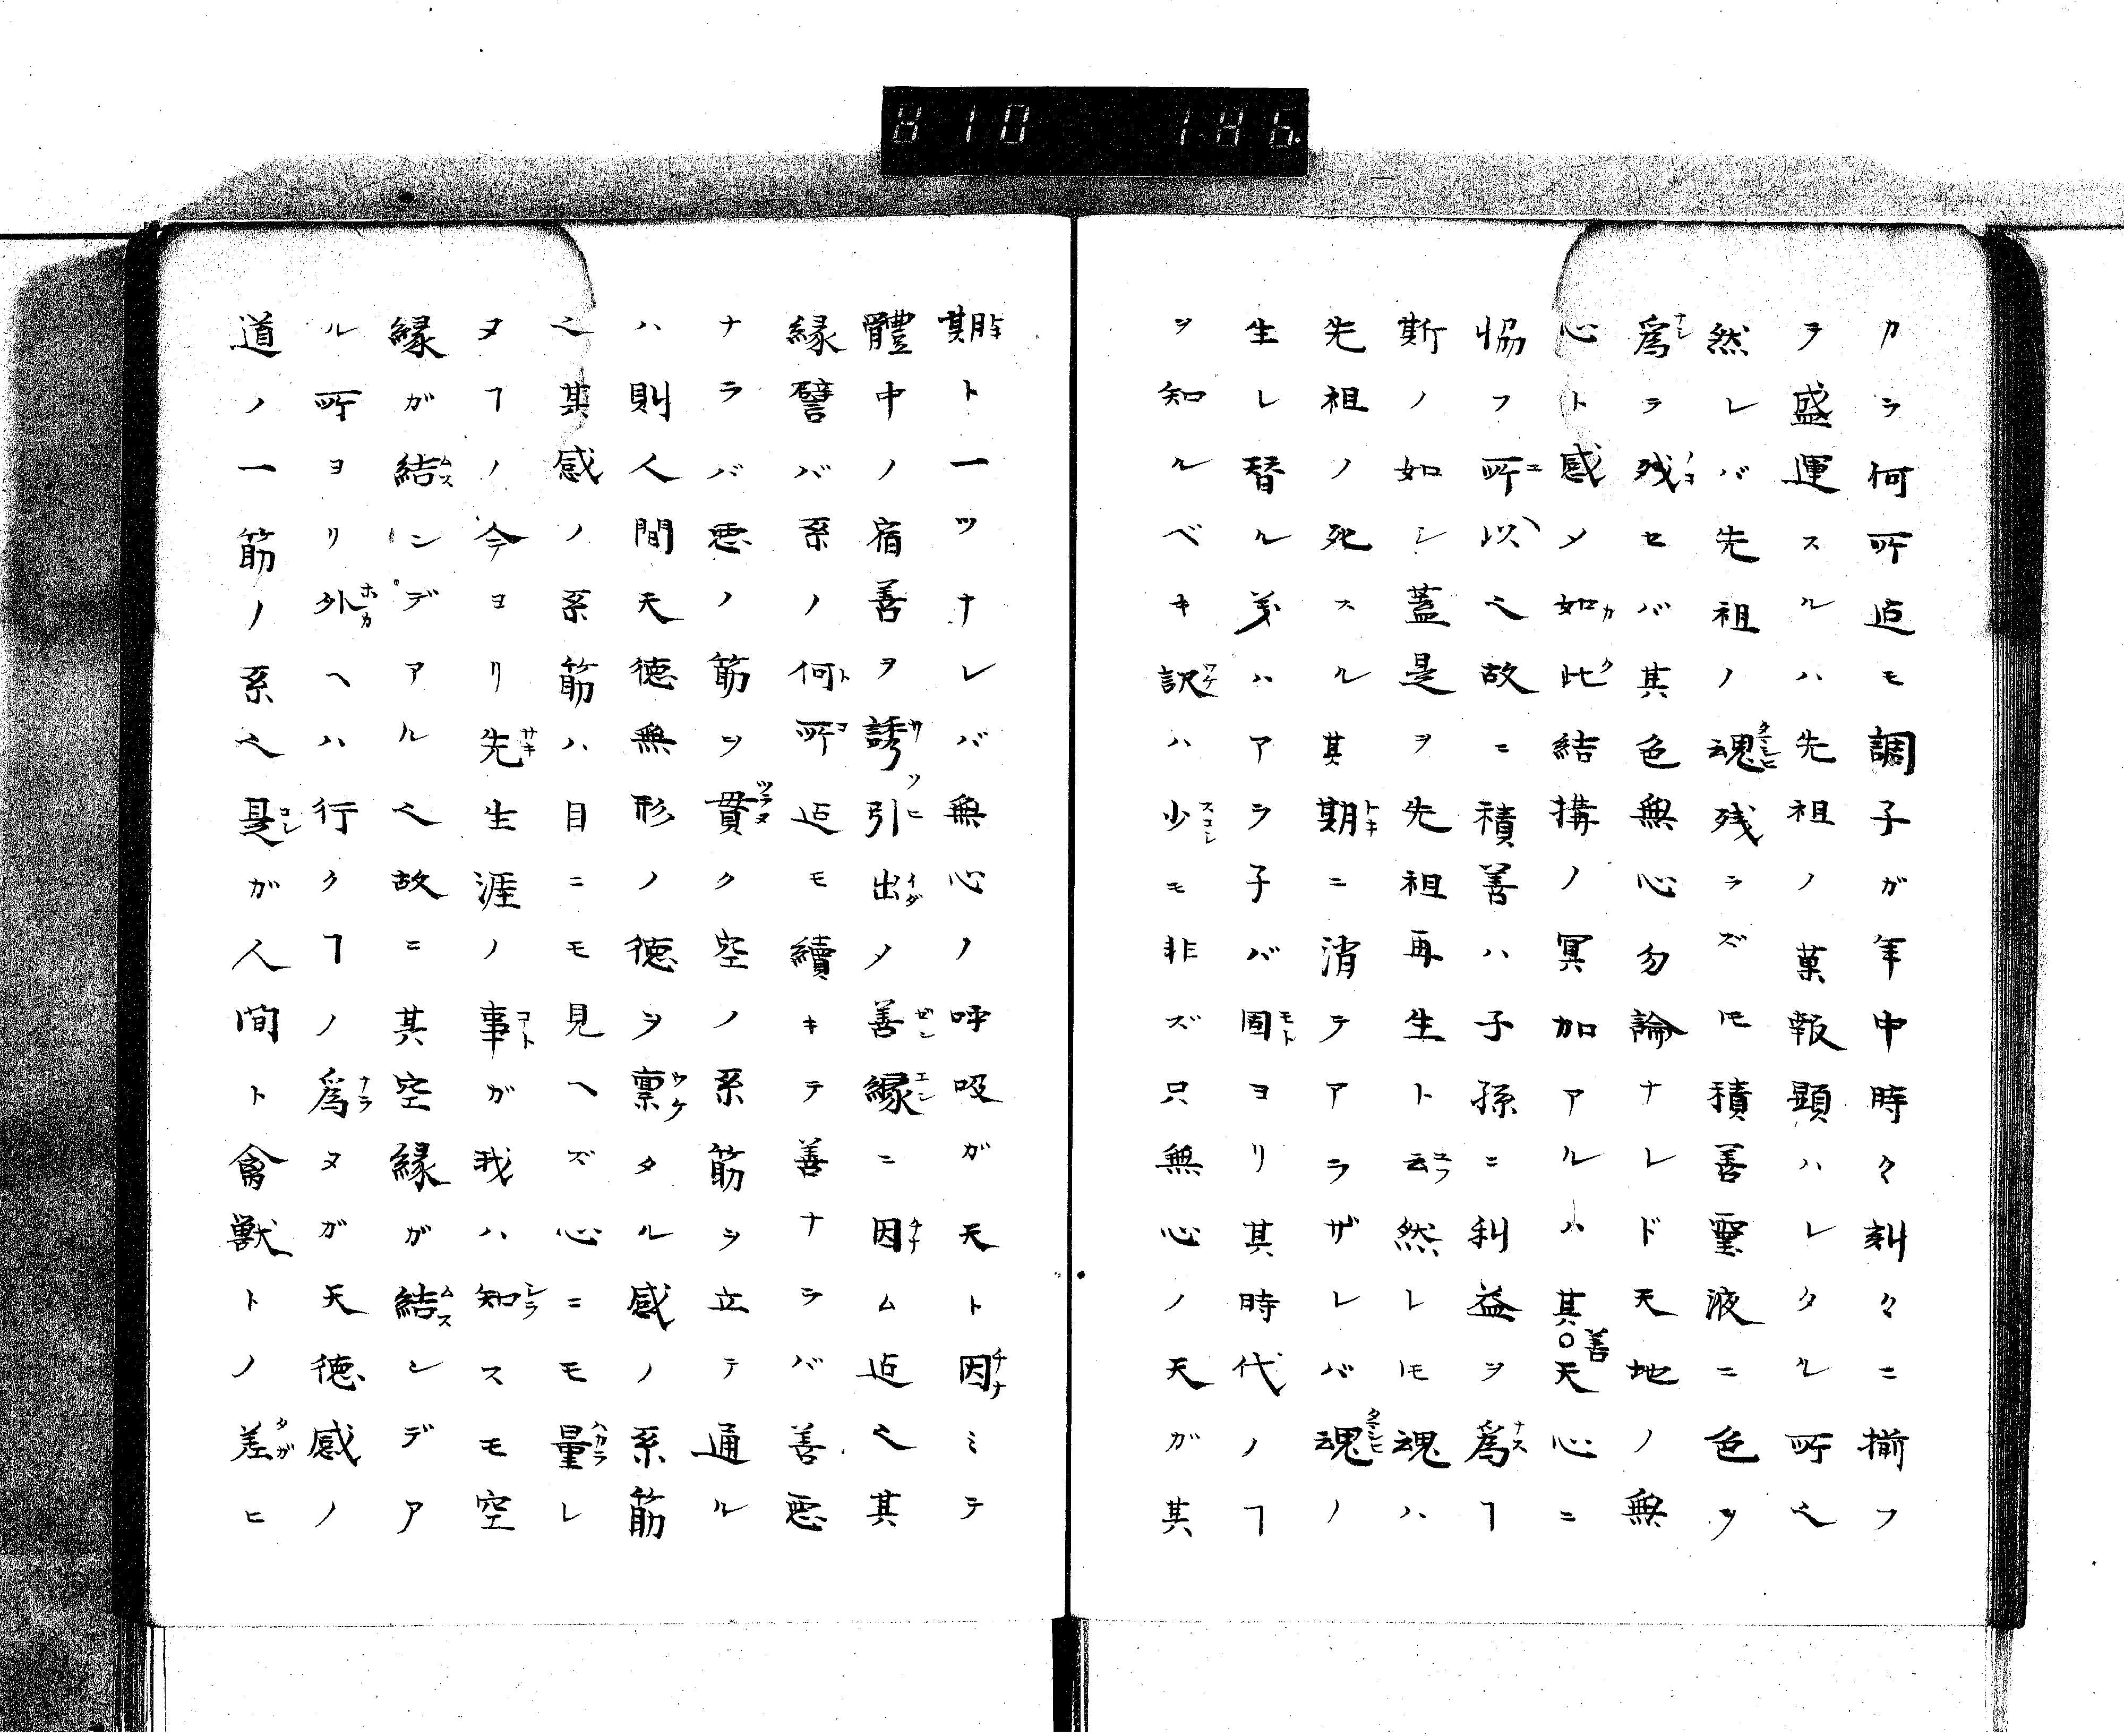 カラ何所迠モ調子ガ年中時々刻々ニ揃フ
ヲ盛運スルハ先祖ノ菓報顕ハレタル所也
然レバ先祖ノ魂残ラズ𪜈積善霊液ニ色ヲ
為ラ残セバ其色無心勿論ナレド天地ノ無
心ト感メ如此結構ノ冥加アルハ其○善天心ニ
恊フ所以也故ニ積善ハ子孫ニ利益ヲ為ヿ
斯ノ如シ蓋是ヲ先祖再生ト云然レ𪜈魂ハ
先祖ノ死スル其期ニ消テアラザレバ魂ノ
生レ替ル義ハアラ子バ固ヨリ其時代ノヿ
ヲ知ルベキ訳ハ少モ非ズ只無心ノ天ガ其
期ト一ツナレバ無心ノ呼吸ガ天ト因ミテ
體中ノ宿善ヲ誘引出メ善縁ニ因ム迠也其
縁譬バ系ノ何所迠モ續キテ善ナラバ善悪
ナラバ悪ノ筋ヲ貫ク空ノ系筋ヲ立テ通ル
ハ則人間天徳無形ノ徳ヲ禀タル感ノ系筋
也其感ノ系筋ハ目ニモ見ヘズ心ニモ量レ
ヌヿノ今ヨリ先生涯ノ事ガ我ハ知スモ空
縁ガ結ンデアル也故ニ其空縁ガ結ンデア
ル所ヨリ外ヘハ行クヿノ為ヌガ天徳感ノ
道ノ一筋ノ系也是ガ人間ト禽獣トノ差ヒ